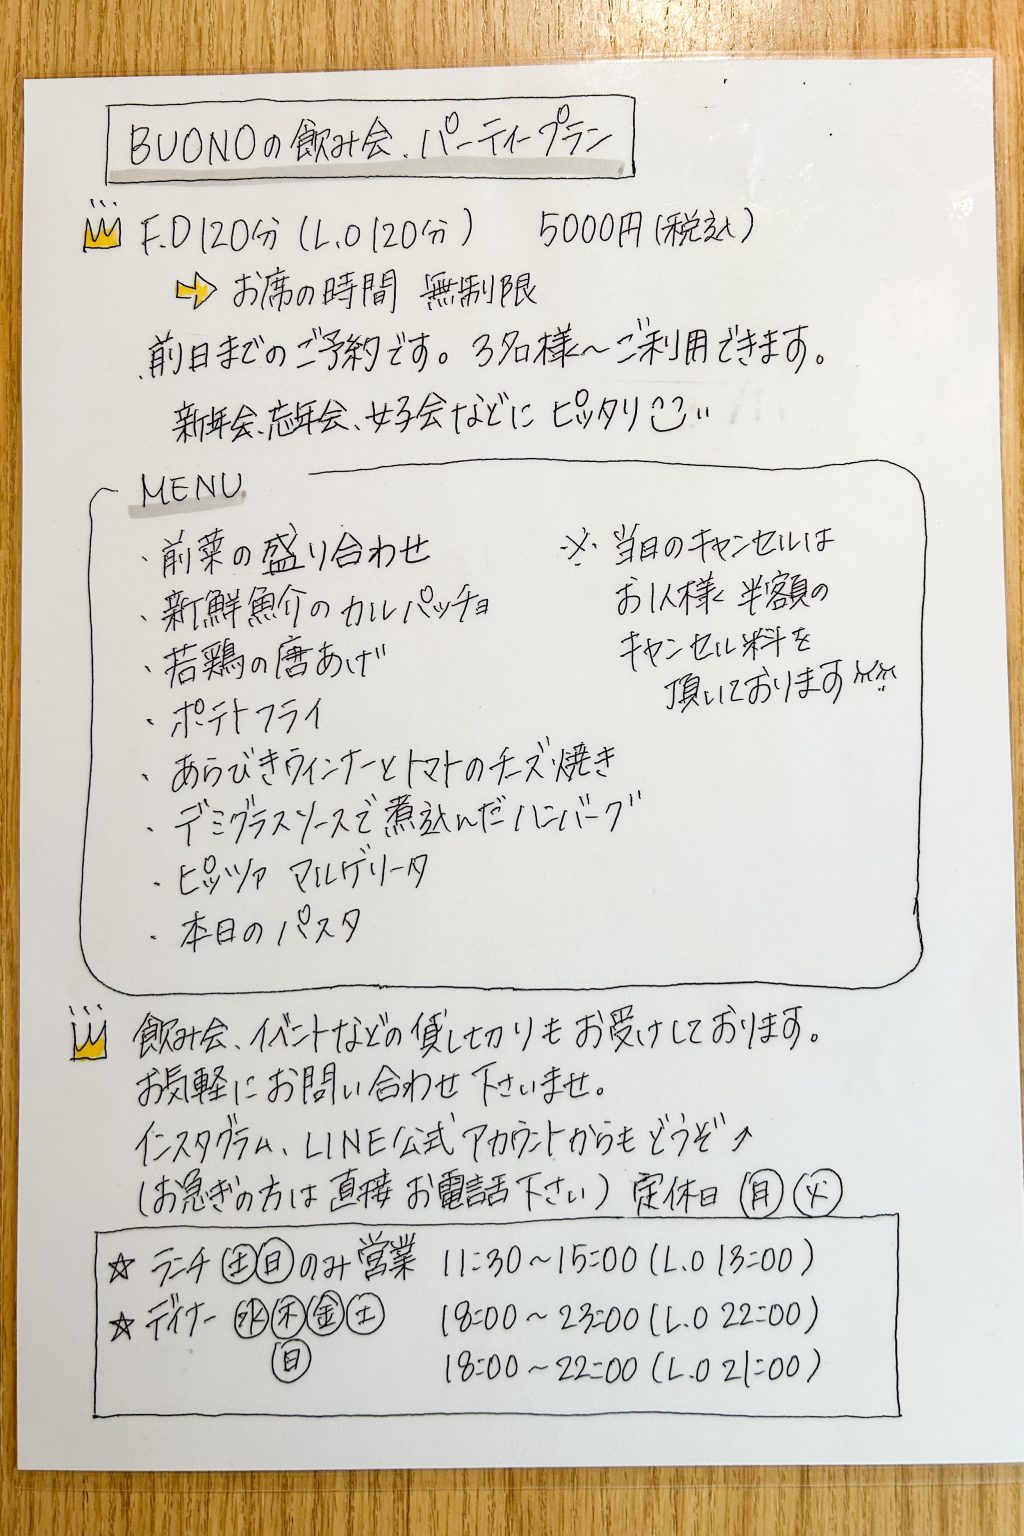 BUONOの飲み会、パーティープラン
F.D 120分 (L.O 120分) 5000円(税込)
⇨ お席の時間 無制限
前日までのご予約です。3名様〜ご利用できます。
新年会、忘年会、女子会などに ピッタリ
MENU
・前菜の盛り合わせ
・新鮮魚介のカルパッチョ
・若鶏の唐あげ
・ポテトフライ
・あらびきウインナーとトマトのチーズ焼き
・デミグラスソースで煮込んだハンバーグ
・ピッツァ マルゲリータ
・本日のパスタ
※ 当日のキャンセルは
お1人様 半額の
キャンセル料を
頂いております
飲み会、イベントなどの貸し切りもお受けしております。
お気軽にお問い合わせ下さいませ。
インスタグラム、LINE公式アカウントからもどうぞ↗
(お急ぎの方は直接お電話下さい) 定休日 ㊊ ㊋
☆ ランチ ㊏㊐のみ営業 11:30〜15:00 (L.O 13:00)
☆ ディナー ㊌㊍㊎㊏ 18:00〜23:00 (L.O 22:00)
㊐ 18:00〜22:00 (L.O 21:00)